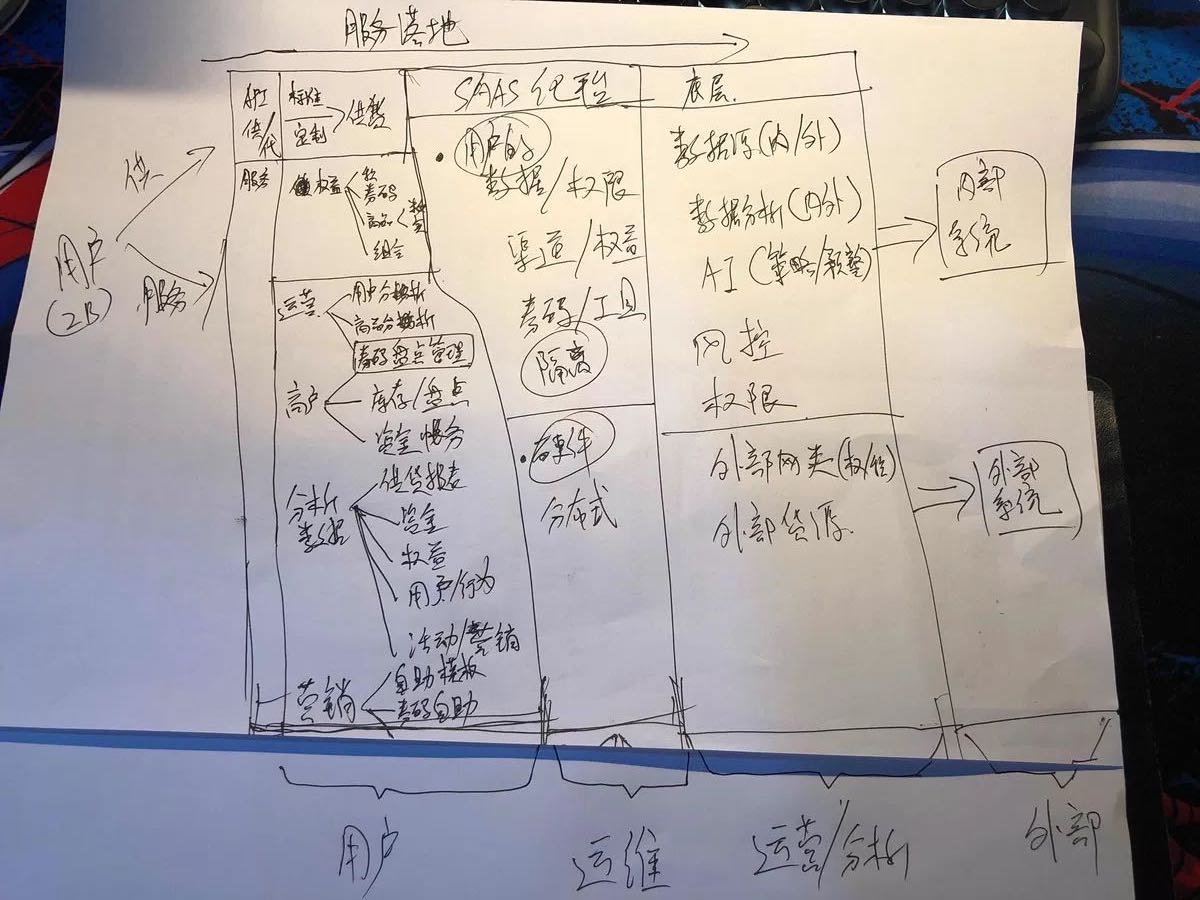 服务落地
用户
(2B)
供
服务
API
供/代
标准
定制
供货
服务
权益
券码
商品
组合
运营
用户分析
商品分析
券码盘点管理
商户
库存/盘点
资金账务
分析
数据
供货报表
资金
权益
用户/行为
活动/营销
营销
自助模板
券码自助
SAAS化平台
用户的
数据/权限
渠道/权益
券码/工具
隔离
分布式
底层
数据源(内/外)
数据分析(内外)
AI(策略/预警)
风控
权限
外部网关
外部货源
内部
系统
外部
系统
用户
运维
运营/分析
外部